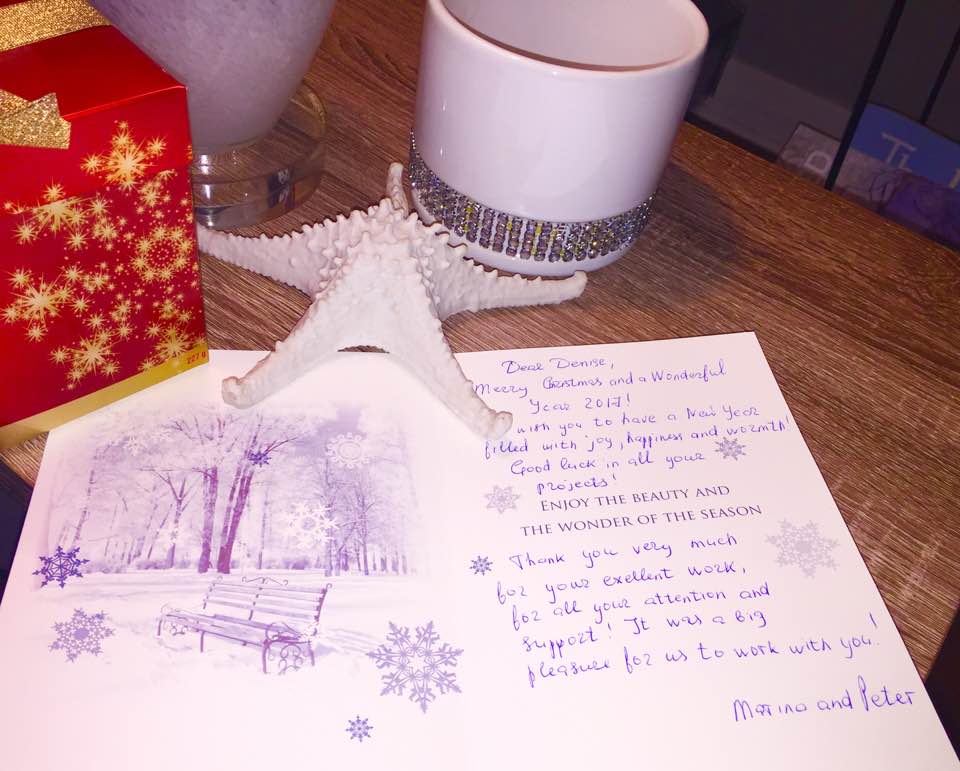 227g
Dear Denise,
Merry Christmas and a Wonderful
Year 2017!
wish you to have a New Year
filled with joy, happiness and warmth!
Good luck in all your
projects!
ENJOY THE BEAUTY AND
THE WONDER OF THE SEASON
Thank you very much
for your exellent work,
for all your attention and
support! It was a big
pleasure for us to work with you!
Marina and Peter